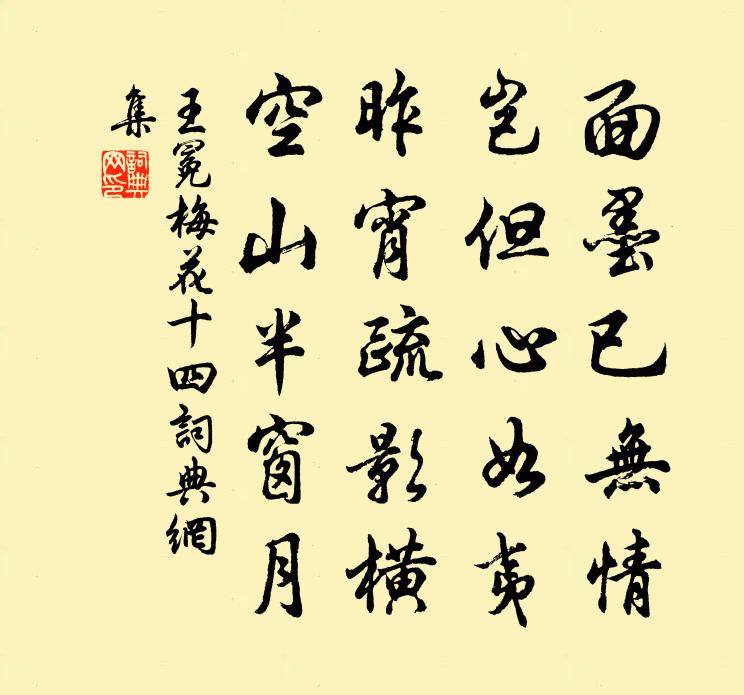 面墨已無情
豈但心如夷
昨宵疏影橫
空山半窗月
王冕梅花十四詞典網
集
詞典網印